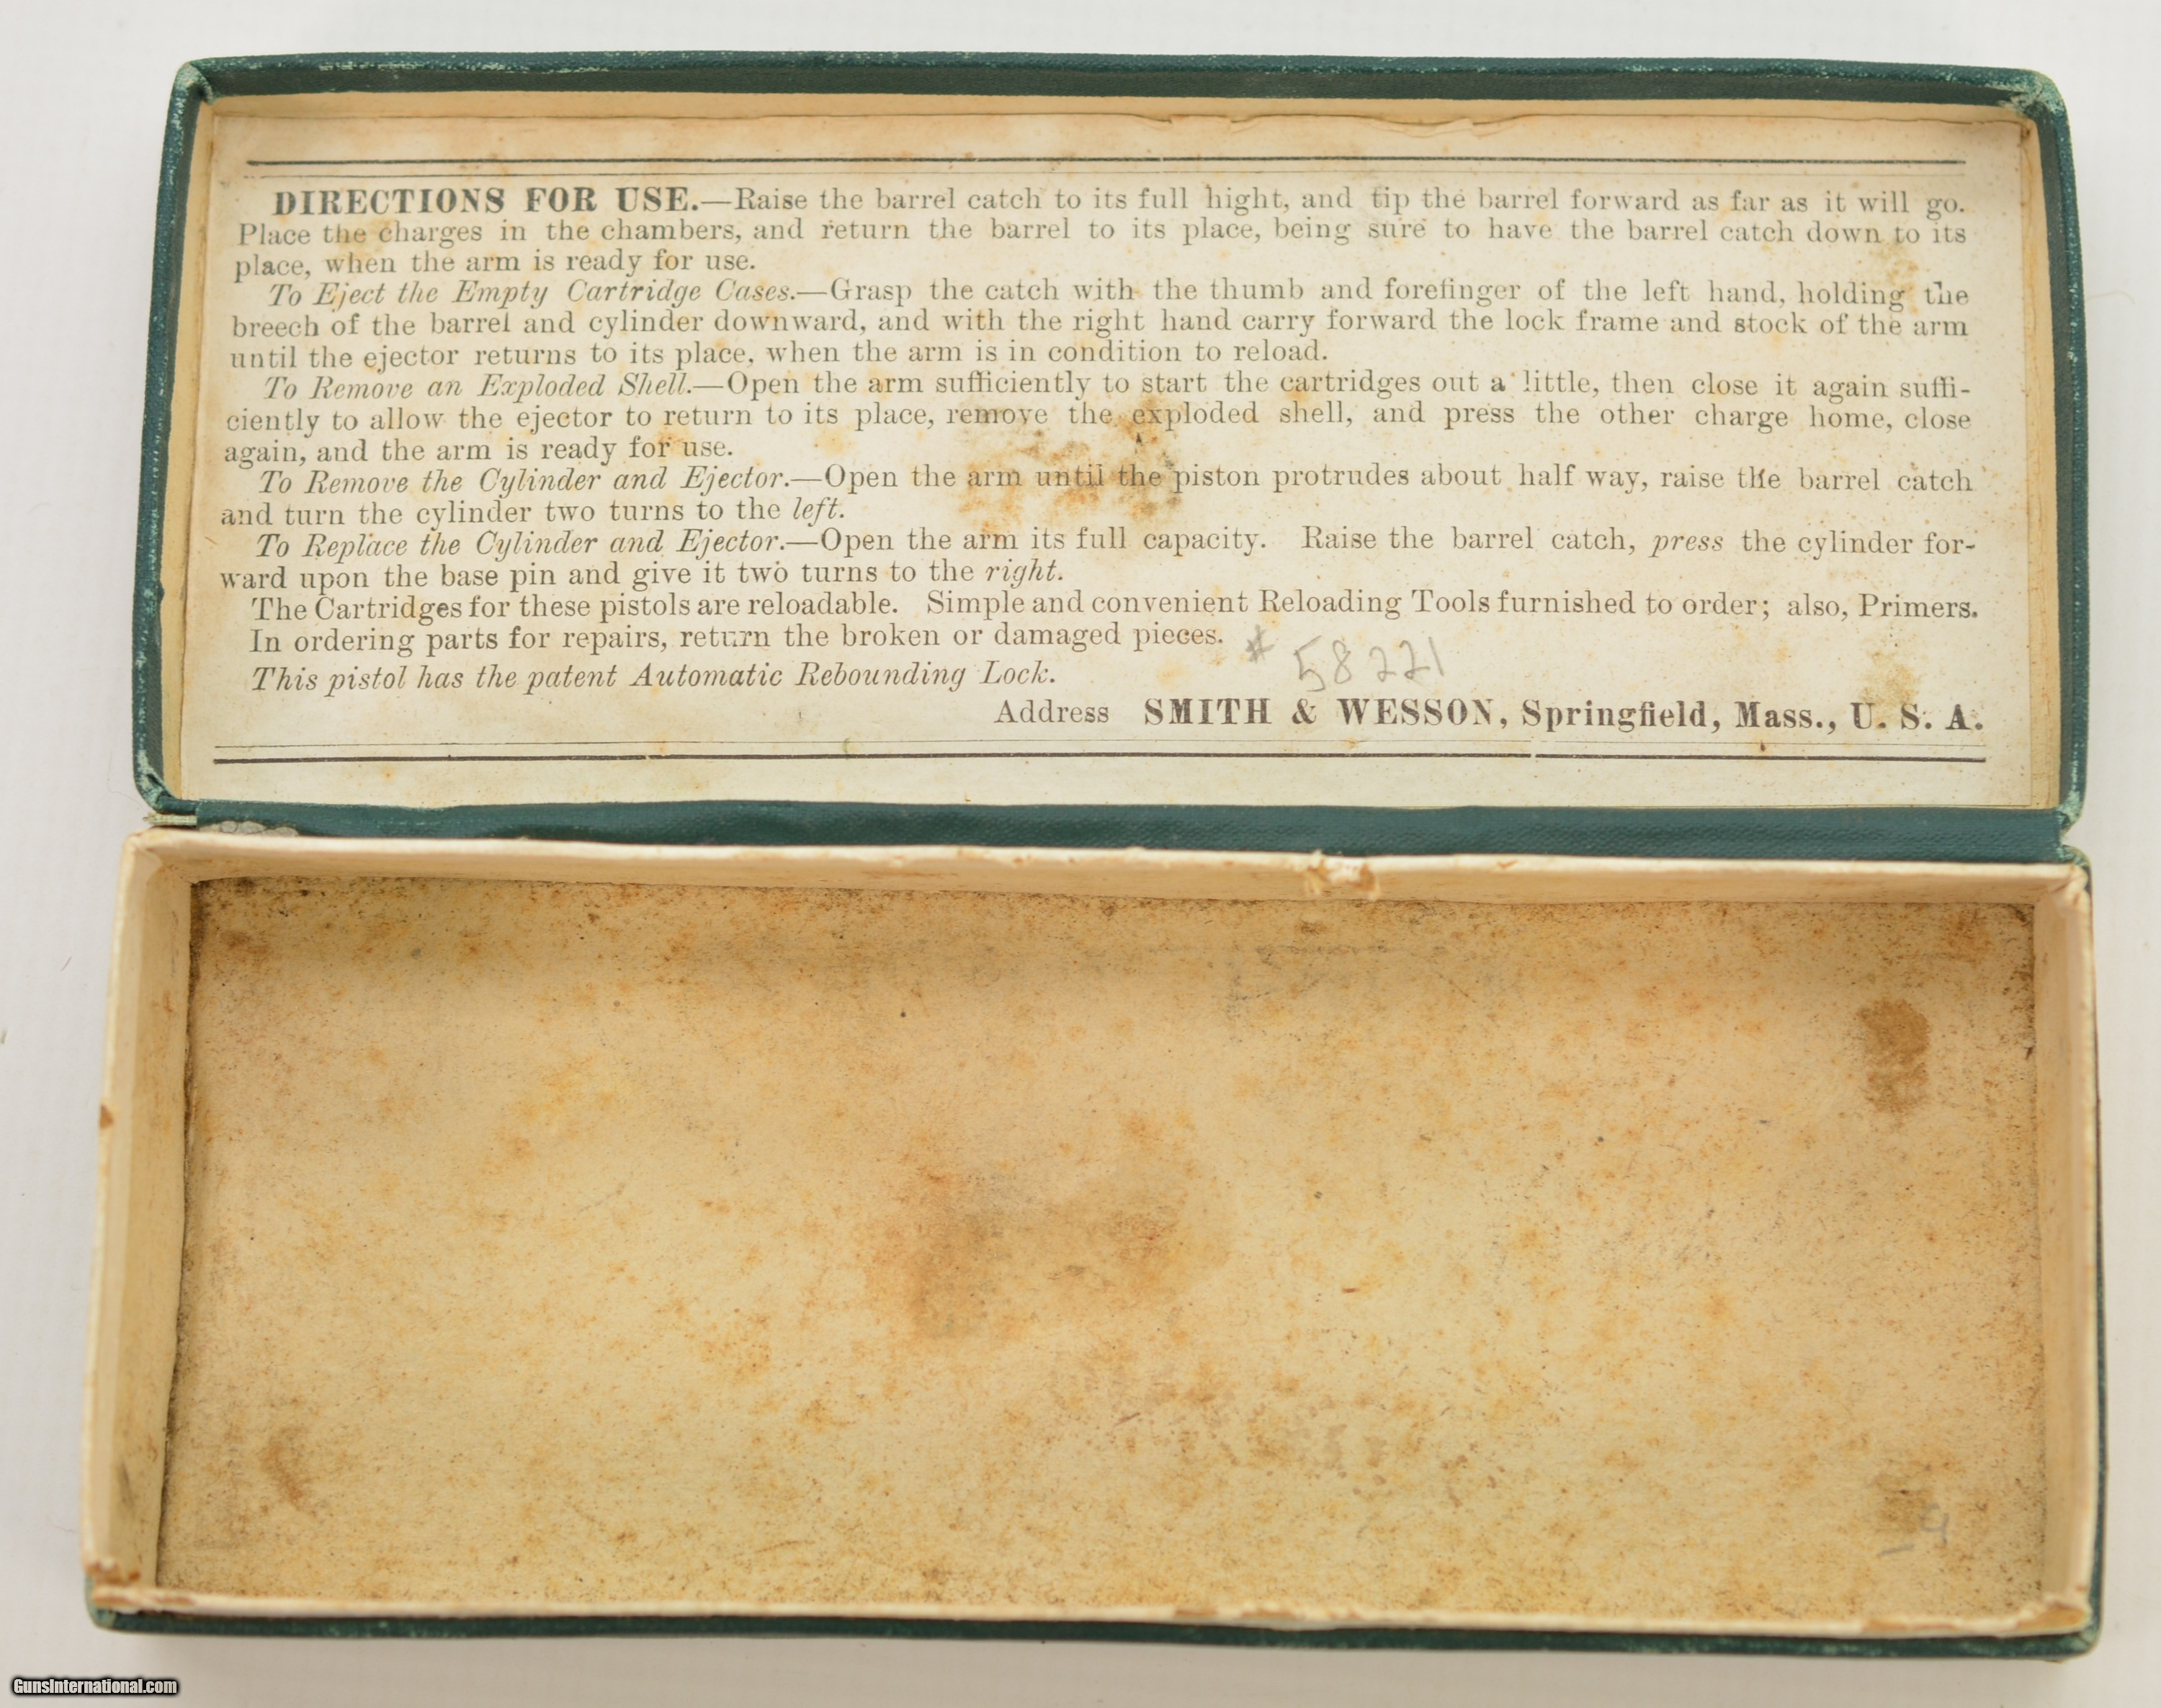 DIRECTIONS FOR USE.—Raise the barrel catch to its full hight, and tip the barrel forward as far as it will go.
Place the charges in the chambers, and return the barrel to its place, being sure to have the barrel catch down to its
place, when the arm is ready for use.
To Eject the Empty Cartridge Cases.—Grasp the catch with the thumb and forefinger of the left hand, holding the
breech of the barrel and cylinder downward, and with the right hand carry forward the lock frame and stock of the arm
until the ejector returns to its place, when the arm is in condition to reload.
To Remove an Exploded Shell.—Open the arm sufficiently to start the cartridges out a little, then close it again suffi-
ciently to allow the ejector to return to its place, remove the exploded shell, and press the other charge home, close
again, and the arm is ready for use.
To Remove the Cylinder and Ejector.—Open the arm until the piston protrudes about half way, raise the barrel catch
and turn the cylinder two turns to the left.
To Replace the Cylinder and Ejector.—Open the arm its full capacity. Raise the barrel catch, press the cylinder for-
ward upon the base pin and give it two turns to the right.
The Cartridges for these pistols are reloadable. Simple and convenient Reloading Tools furnished to order; also, Primers.
In ordering parts for repairs, return the broken or damaged pieces.
# 58221
This pistol has the patent Automatic Rebounding Lock.
Address SMITH & WESSON, Springfield, Mass., U. S. A.
GunsInternational.com